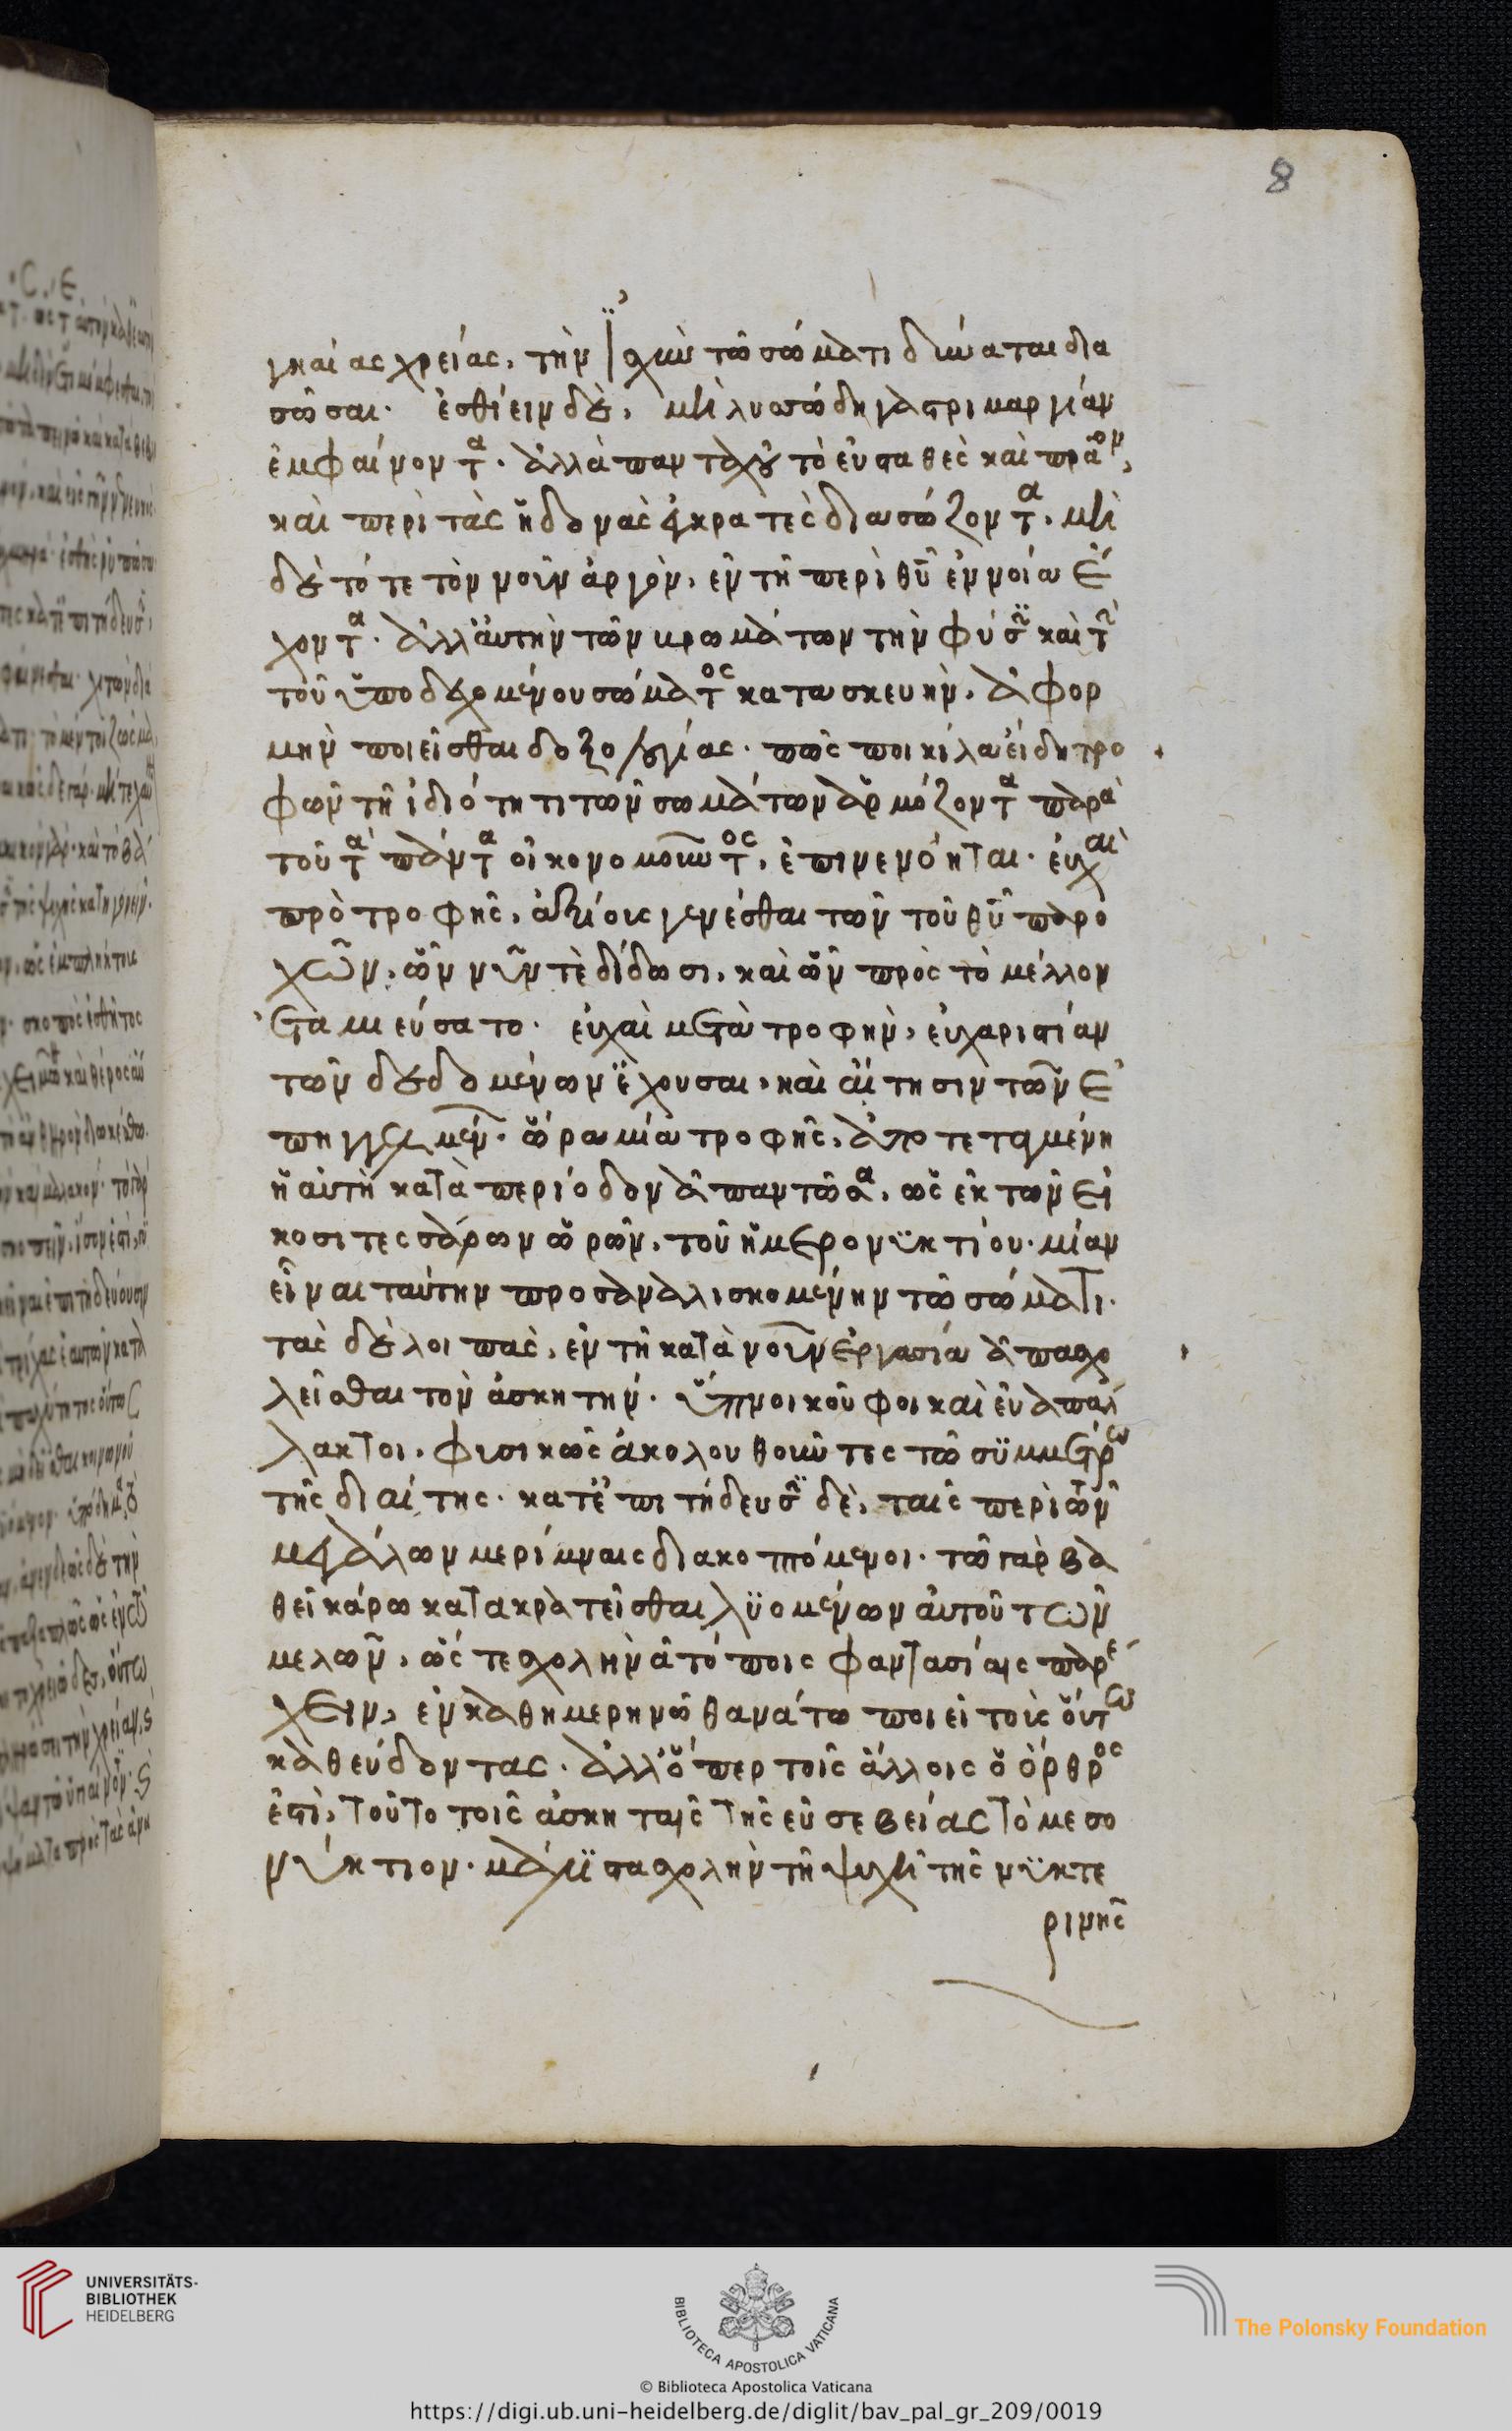 8
γκαίας χρείας, τὴν ἰσχὺν τῶ σώματι δύναται δια
σῶσαι· ἐσθίειν δὲ, μὴ λυσσώδη γαστριμαργίαν
ἐμφαίνοντα· ἀλλὰ πανταχοῦ τὸ εὐσταθὲς καὶ πρᾶον,
καὶ περὶ τὰς ἡδονὰς ἐγκρατὲς διασώζοντα, μὴ
δὲ τότε τὸν νοῦν ἀργὸν, ἐν τῆ περὶ θῦ ἐννοία ἔ
χοντα· ἀλλ' αὐτὴν τῶν βρωμάτων τὴν φύσιν καὶ τὴν
τοῦ ὑποδεχομένου σώματος κατασκευὴν, ἀφορ
μὴν ποιεῖσθαι δοξολογίας· πῶς ποικίλα εἴδη τρο
φῶν τῆ ἰδιότητι τῶν σωμάτων ἁρμόζοντα παρὰ
τοῦ τὰ πάντα οἰκονομοῦντος, ἐπινενόηται· εὐχαὶ
πρὸ τροφῆς, ἀξίοις γενέσθαι τῶν τοῦ θῦ παρο
χῶν, ὧν νῦν τὲ δίδωσι, καὶ ὧν πρὸς τὸ μέλλον
ἐταμιεύσατο· εὐχαὶ μετὰ τροφὴν, εὐχαριστίαν
τῶν δεδομένων ἔχουσαι, καὶ αἴτησιν τῶν ἐ
πηγγελμένων· ὥρα μία τροφῆς, ἀποτεταγμένη
ἡ αὐτὴ κατὰ περίοδον ἀπαντῶσα, ὡς ἐκ τῶν εἰ
κοσιτεσσάρων ὡρῶν, τοῦ ἡμερονυκτίου· μίαν
εἶναι ταύτην προσαναλισκομένην τῶ σώματι·
τὰς δὲ λοιπὰς, ἐν τῆ κατὰ νοῦν ἐργασία ἀπασχο
λεῖσθαι τὸν ἀσκητήν· ὕπνοι κοῦφοι καὶ εὐαπάλ
λακτοι, φυσικῶς ἀκολουθοῦντες τῶ συμμέτρω
τῆς διαίτης· κατ' ἐπιτήδευσιν δὲ, ταῖς περὶ τῶν
μεγάλων μερίμναις διακοπτόμενοι· τῶ γὰρ βα
θεῖ κάρω κατακρατεῖσθαι λυομένων αὐτοῦ τῶν
μελῶν, ὥστε σχολὴν ἀτόποις φαντασίαις παρέ
χειν, ἐν καθημερηνῶ θανάτω ποιεῖ τοὺς οὕτω
καθεύδοντας· ἀλλ' ὅπερ τοῖς ἄλλοις ὁ ὄρθρος
ἐστὶ, τοῦτο τοῖς ἀσκηταῖς τῆς εὐσεβείας τὸ μεσο
νύκτιον· μάλιστα σχολὴν τῆ ψυχῆ τῆς νυκτε
ρινῆς
UNIVERSITÄTS-
BIBLIOTHEK
HEIDELBERG
BIBLIOTECA APOSTOLICA VATICANA
The Polonsky Foundation
© Biblioteca Apostolica Vaticana
https://digi.ub.uni-heidelberg.de/diglit/bav_pal_gr_209/0019